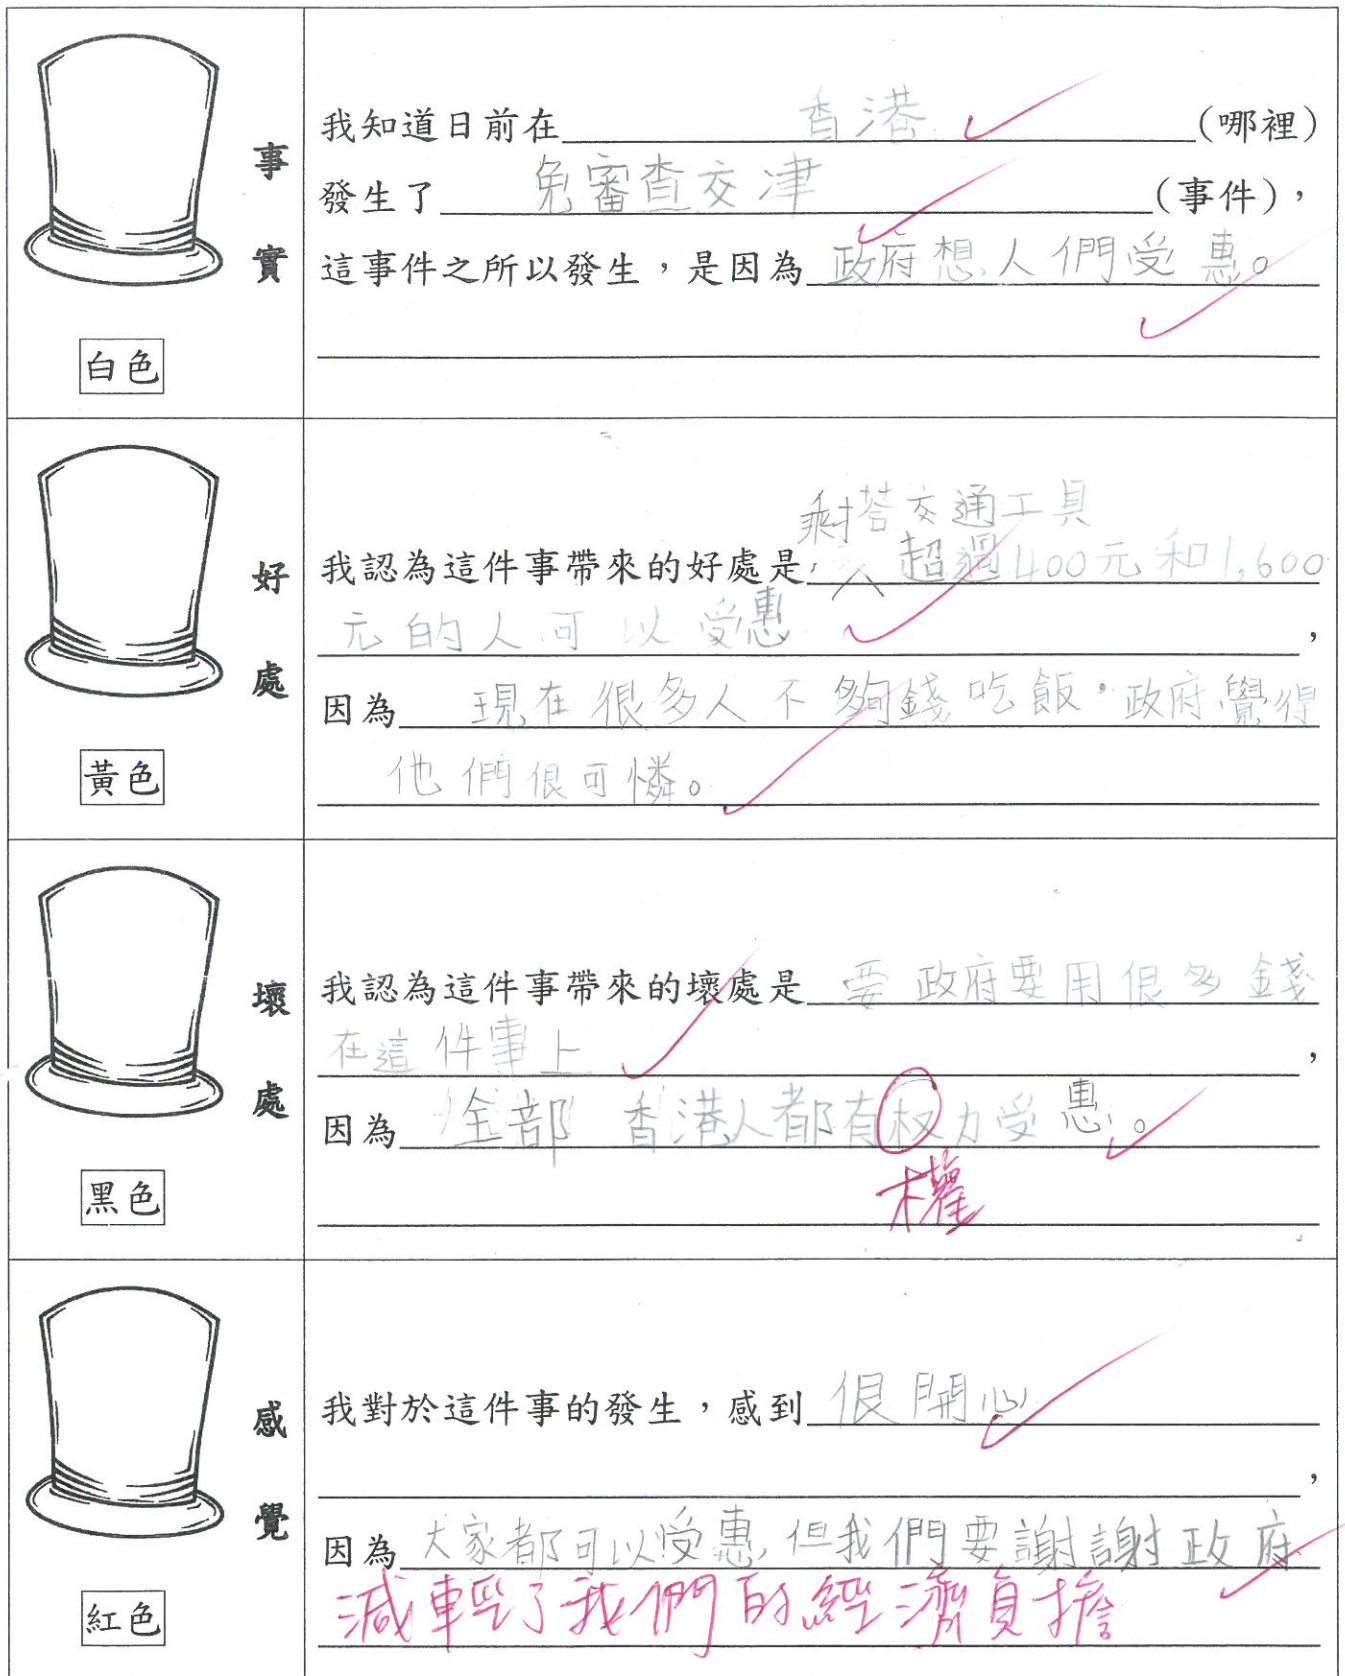 事實
白色
我知道日前在香港(哪裡)
發生了免審查交津(事件),
這事件之所以發生,是因為政府想人們受惠。
好處
黃色
搭交通工具
我認為這件事帶來的好處是超過400元和1,600
元的人可以受惠,
因為現在很多人不夠錢吃飯,政府覺得
他們很可憐。
壞處
黑色
我認為這件事帶來的壞處是要政府要用很多錢
在這件事上,
因為全部香港人都有权力受惠。
權
感覺
紅色
我對於這件事的發生,感到很開心
,
因為大家都可以受惠,但我們要謝謝政府
減輕了我們的經濟負擔